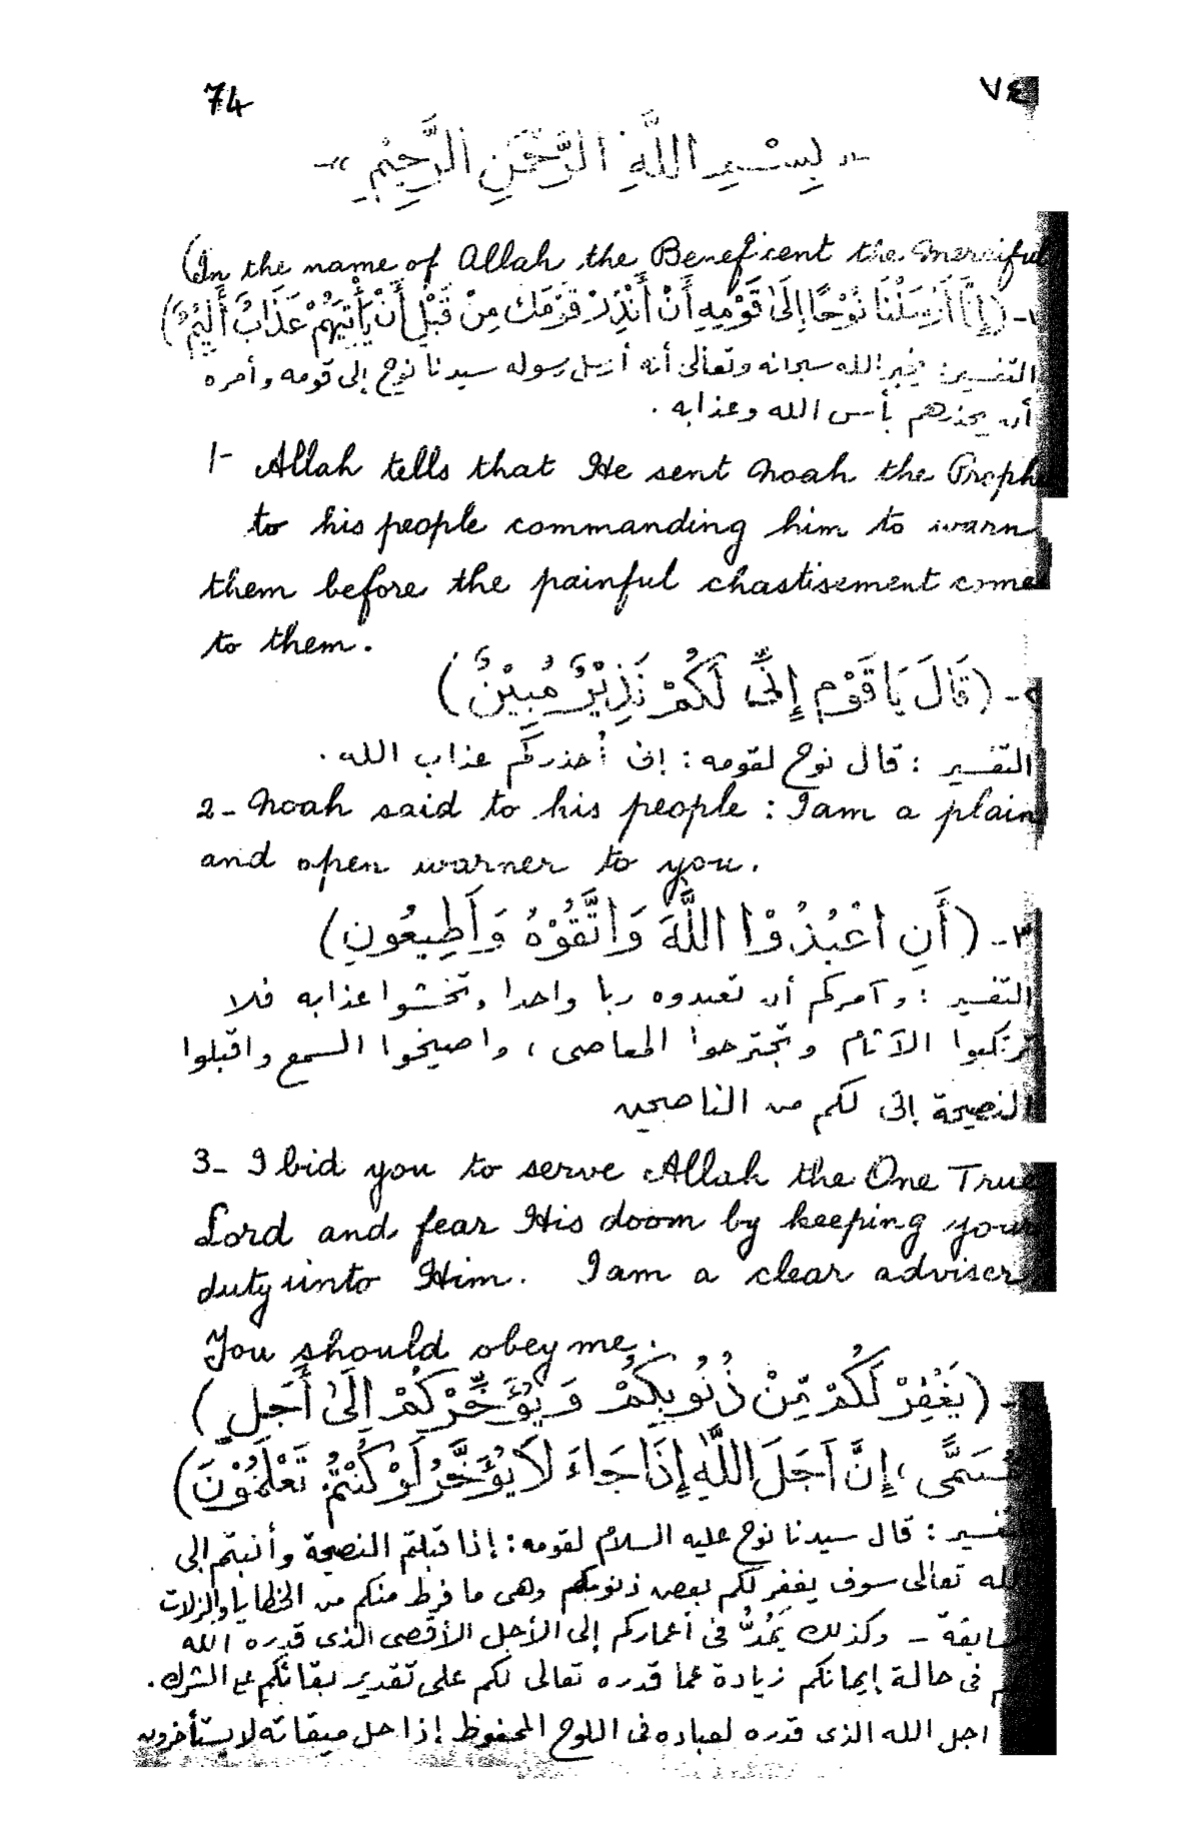 74
٧٤
بِسْمِ اللَّهِ الرَّحْمَنِ الرَّحِيْمِ
(In the name of Allah the Beneficent the Merciful
١- (إِنَّا أَرْسَلْنَا نُوْحًا إِلَىٰ قَوْمِهِ أَنْ أَنْذِرْ قَوْمَكَ مِنْ قَبْلِ أَنْ يَأْتِيَهُمْ عَذَابٌ أَلِيْمٌ)
التفسير: يخبر الله سبحانه وتعالى أنه أرسل رسوله سيدنا نوح إلى قومه وأمره
أن يحذرهم بأس الله وعذابه .
1- Allah tells that He sent Noah the Proph
to his people commanding him to warn
them before the painful chastisement come
to them.
٢- (قَالَ يَا قَوْمِ إِنِّى لَكُمْ نَذِيْرٌ مُبِيْنٌ)
التفسير : قال نوح لقومه : إنى أحذركم عذاب الله .
2- Noah said to his people : I am a plain
and open warner to you.
٣- (أَنِ اعْبُدُوْا اللَّهَ وَاتَّقُوْهُ وَأَطِيعُونِ)
التفسير : وآمركم أن تعبدوه ربا واحدا وتخشوا عذابه فلا
ترتكبوا الآثام وتجترحوا المعاصى ، واصيخوا السمع واقبلوا
النصيحة إنى لكم من الناصحين
3- I bid you to serve Allah the One True
Lord and fear His doom by keeping your
duty unto Him. I am a clear adviser
You should obey me.
- (يَغْفِرْ لَكُمْ مِّنْ ذُنُوبِكُمْ وَيُؤَخِّرْكُمْ إِلَىٰ أَجَلٍ)
مُسَمًّى ، إِنَّ أَجَلَ اللَّهِ إِذَا جَاءَ لَا يُؤَخَّرُ لَوْ كُنْتُمْ تَعْلَمُوْنَ)
فسير : قال سيدنا نوح عليه السلام لقومه : إذا قبلتم النصيحة وأنبتم إلى
لله تعالى سوف يغفر لكم بعض ذنوبكم وهى ما فرط منكم من الخطايا والزلات
سابقة - وكذلك يَمُدُّ فى أعماركم إلى الأجل الأقصى الذى قدره الله
م فى حالة إيمانكم زيادة عما قدره تعالى لكم على تقدير بقائكم على الشرك .
اجل الله الذى قدره لعباده فى اللوح المحفوظ إذا حل ميقاته لا يستأخرون